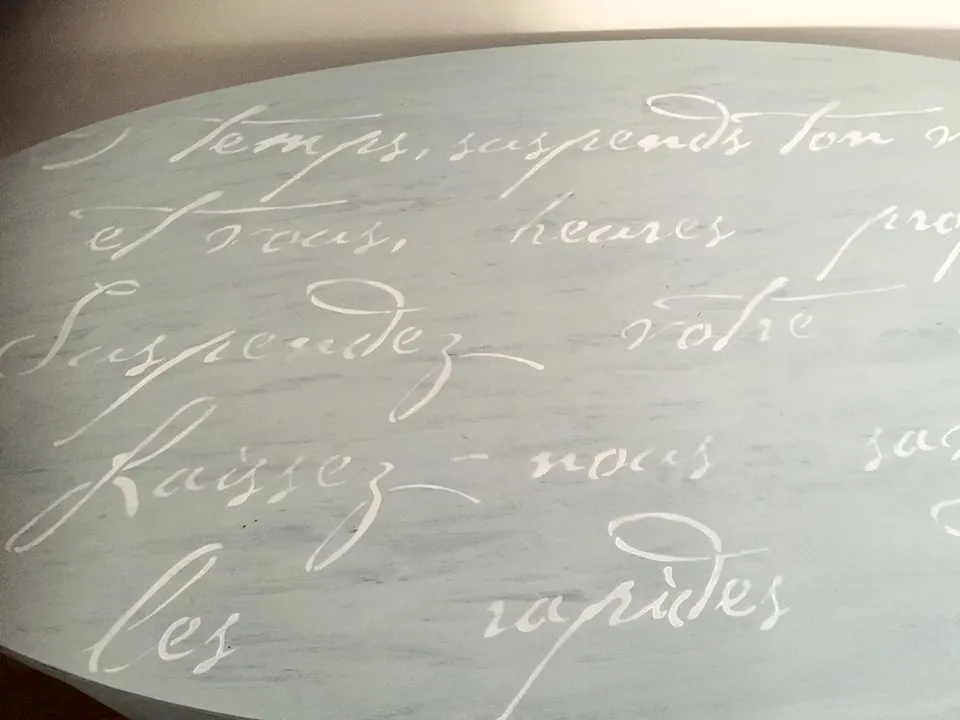 Ô temps, suspends ton v
et vous, heures prop
Suspendez votre
Laissez-nous sav
les rapides